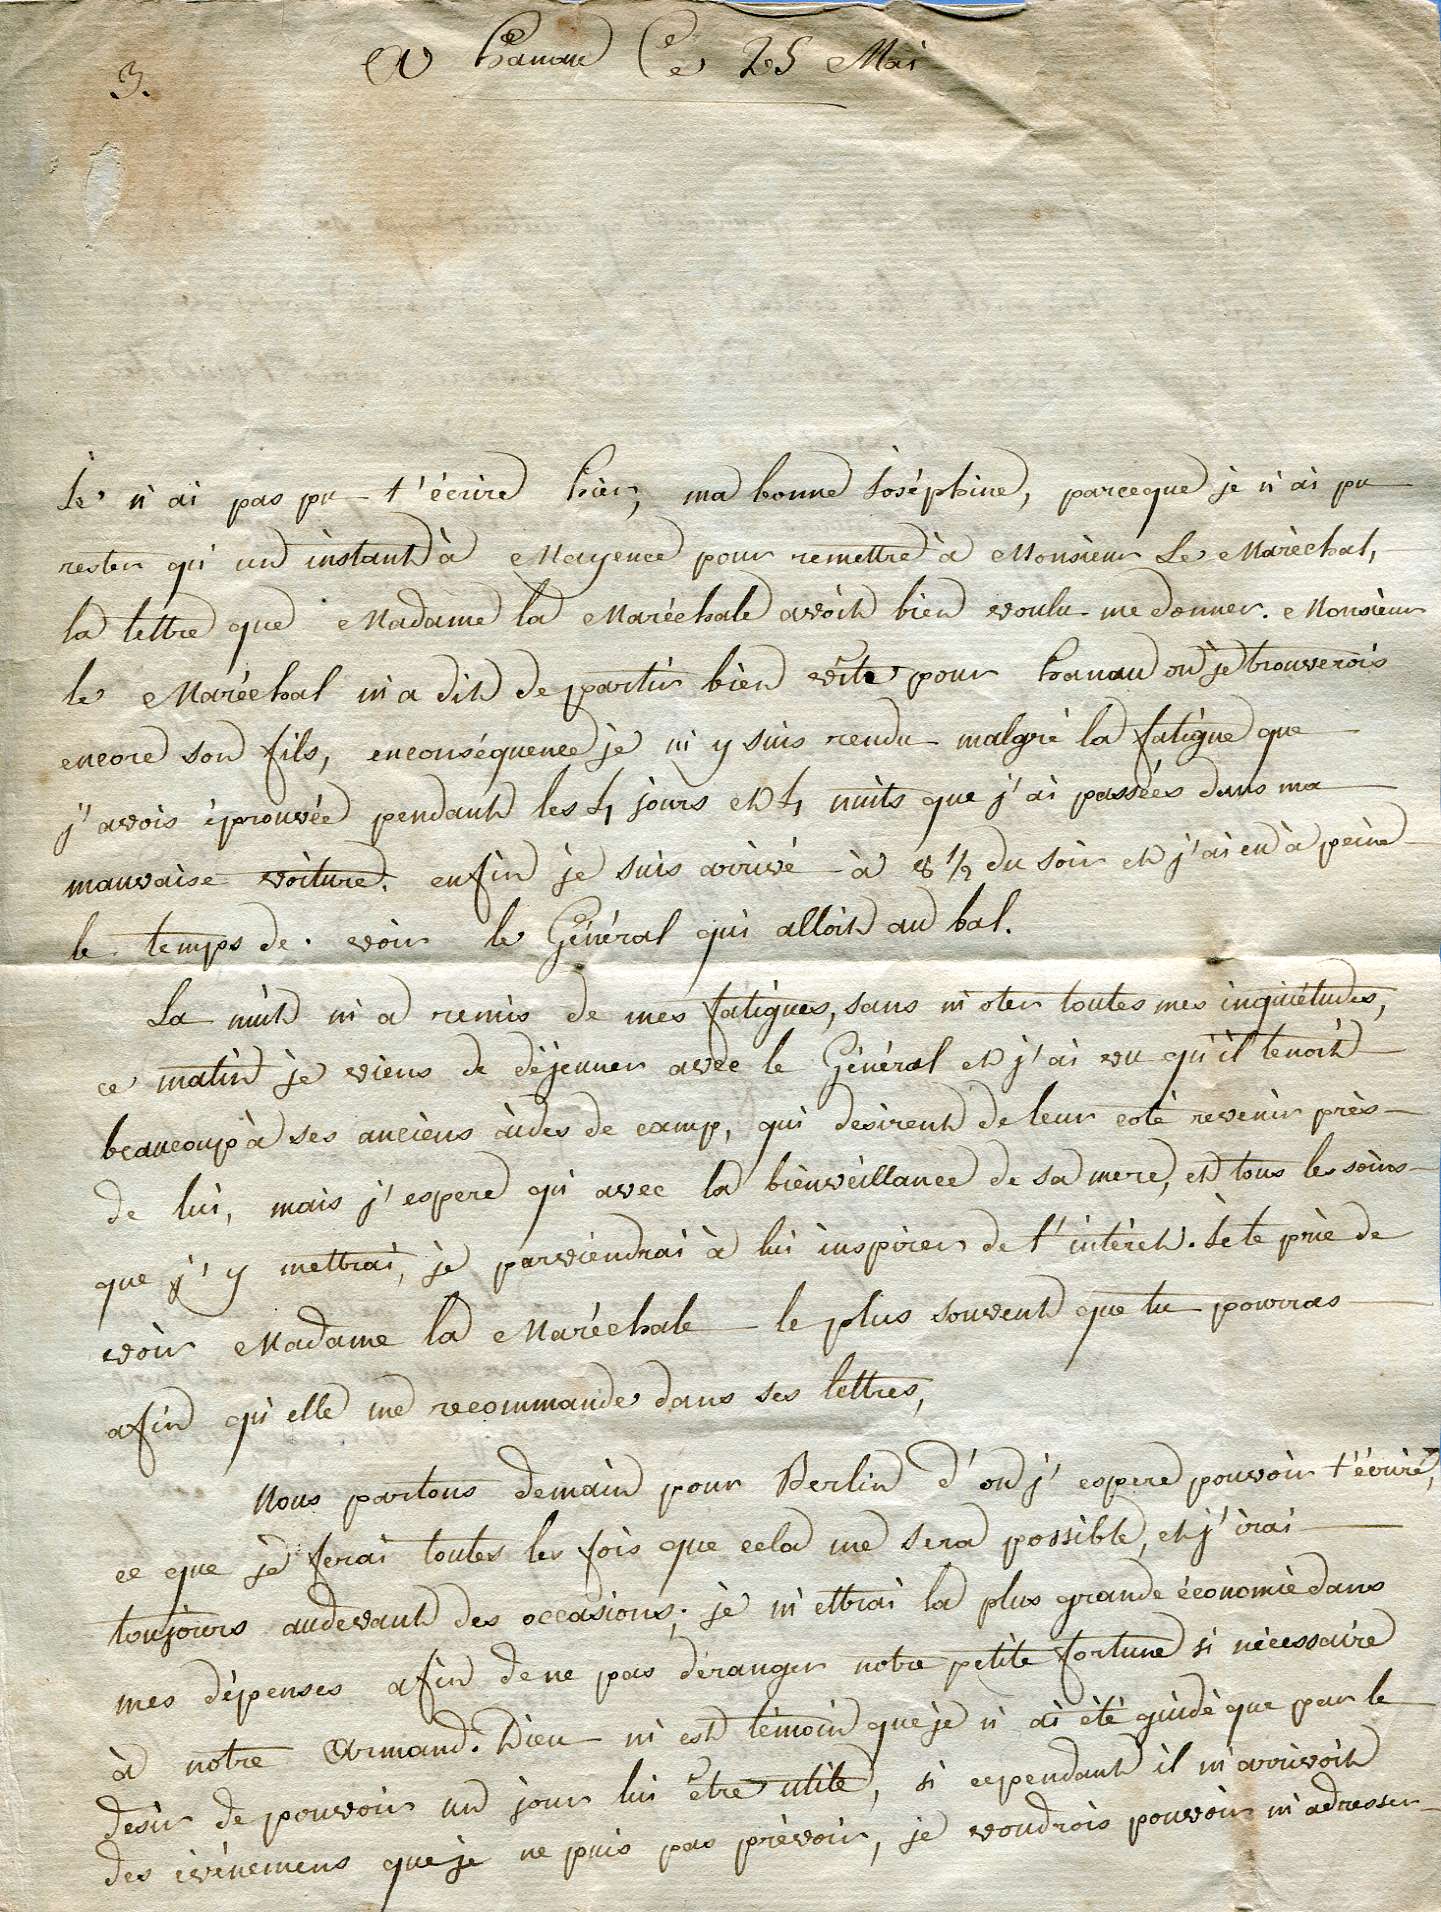 3.
A hanau Ce 25 Mai
Je n'ai pas pu t'écrire hier, ma bonne Joséphine, parceque je n'ai pu
rester qu'un instant à Mayence pour remettre à Monsieur Le Maréchal,
la lettre que Madame la Maréchale avoit bien voulu me donner. Monsieur
le Maréchal m'a dit de partir bien vîte pour hanau où je trouverois
encore son fils, enconséquence je m'y suis rendu malgré la fatigue que
j'avois éprouvée pendant les 4 jours et 4 nuits que j'ai passées dans ma
mauvaise voiture. enfin je suis arrivé à 8 1/2 du soir et j'ai eu à peine
le temps de voir le Général qui alloit au bal.
La nuit m'a remis de mes fatigues, sans m'oter toutes mes inquiétudes,
ce matin je viens de déjeuner avec le Général et j'ai vu qu'il tenoit
beaucoup à ses anciens aides de camp, qui desirent de leur coté revenir près
de lui, mais j'espere qu'avec la bienveillance de sa mere, et tous les soins
que j'y mettrai, je parviendrai à lui inspirer de l'intéret. Je te prie de
voir Madame la Maréchale le plus souvent que tu pourras
afin qu'elle me recommande dans ses lettres,
Nous partons demain pour Berlin d'ou j'espere pouvoir t'écrire,
ce que je ferai toutes les fois que cela me sera possible, et j'irai
toujours audevant des occasions; je mettrai la plus grande économie dans
mes dépenses afin de ne pas déranger notre petite fortune si nécessaire
à notre Armand. Dieu m'est témoin que je n'ai été guidé que par le
desir de pouvoir un jour lui être utile, si cependant il m'arrivoit
des événemens que je ne puis pas prévoir, je voudrois pouvoir m'adresser